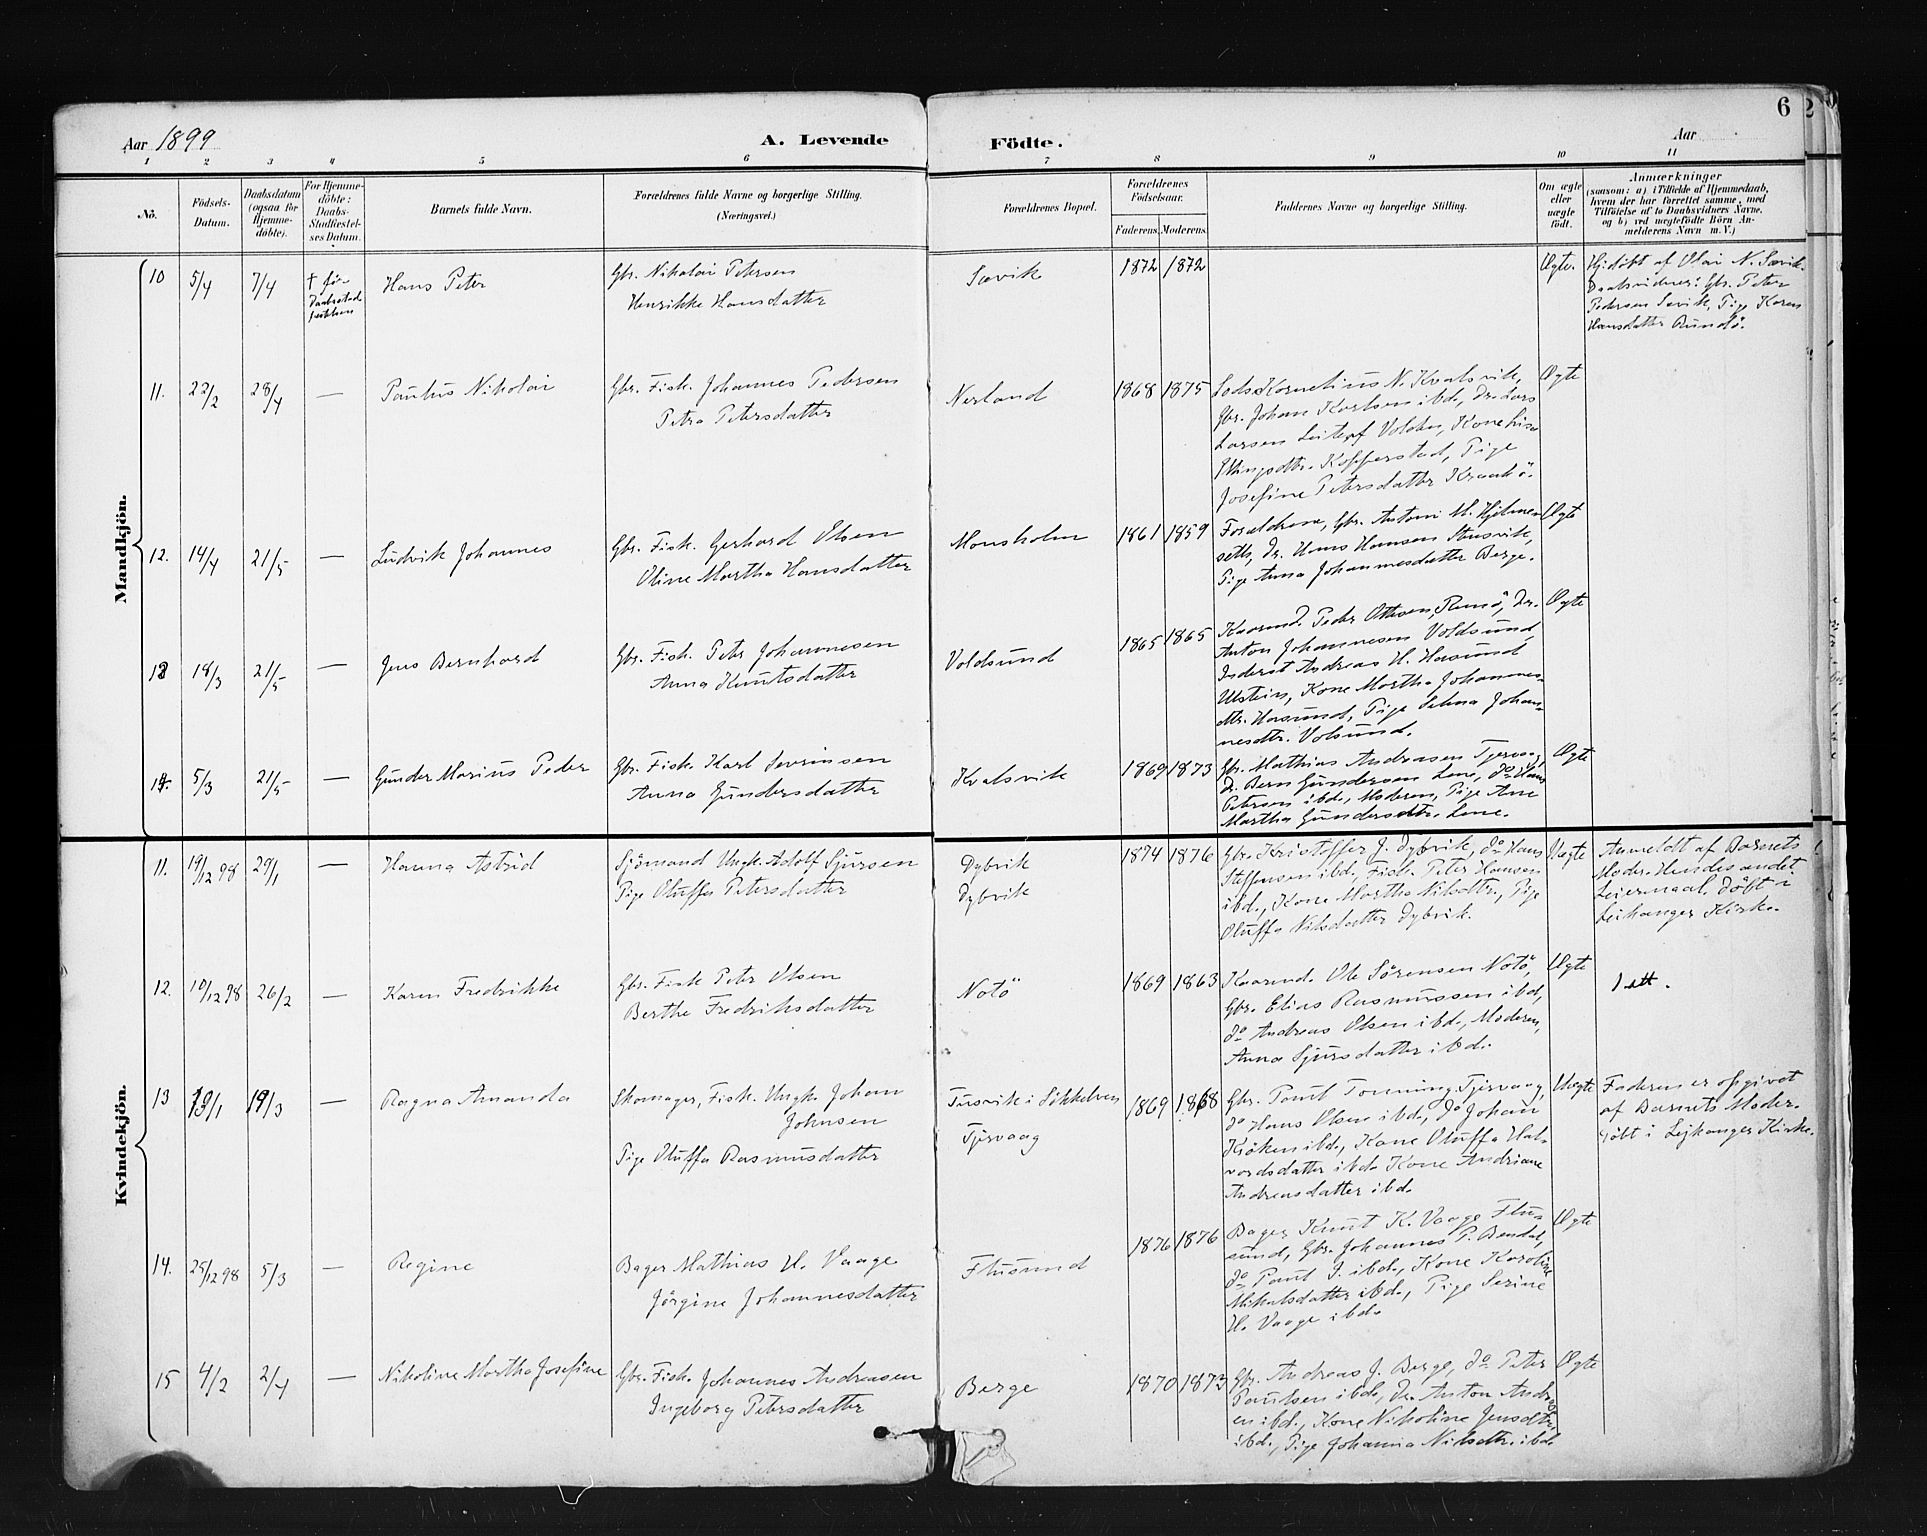 6
Aar 1899
A. Levende
Födte.
Aar
1 2 3 4 5 6 7 8 9 10 11
Nö.
Födsels-
Datum.
Daabsdatum
(ogsaa for
Hjemme-
döbte).
For Hjemme-
döbte:
Daabs-
Stadfæstel-
ses Datum.
Barnets fulde Navn.
Forældrenes fulde Navne og borgerlige Stilling.
(Næringsvei.)
Forældrenes Bopæl.
Forældrenes
Födselsaar.
Faderens. Moderens.
Faddernes Navne og borgerlige Stilling.
Om ægte
eller
uægte
födt.
Anmærkninger
(saasom: a) i Tilfælde af Hjemmedaab,
hvem der har forrettet samme, med
Tilföielse af to Daabsvidners Navne,
og b) ved uægtefödte Börn An-
melderens Navn m. V.)
Mandkjön.
10 5/4 7/4
Hans Peter
Gbr. Nikolai Petersen
Henrikke Hansdatter
Sævik
1872 1872
Ægte.
Hj.döbt af Olai N. Sævik.
Daabsvidner: Gbr. Peter
Pedersen Sævik, Pige Karen
Hansdatter Rundö.
11. 22/2 28/4 —
Paulus Nikolai
Gbr. Fisk. Johannes Pedersen
Petra Petersdatter
Nerland
1868 1875
Kornelius N. Kvalsvik,
Gbr. Johan Karlsen ibd., Dr. Lars
Larsen Volden, Kone
Kopperstad, Pige
Josefine Petersdatter Kraakö.
Ægte
12. 14/4 21/5 —
Ludvik Johannes
Gbr. Fisk. Gerhard Olsen
Oline Martha Hansdatter
Monsholm
1861 1859
Forældrene, Gbr. Antoni M. Hjelme-
seth, Dr. Hans Hansen
Pige Anna Johannesdatter Berge.
Ægte
13 18/3 21/5 —
Jens Bernhard
Gbr. Fisk. Peter Johannesen
Anna Knutsdatter
Voldsund
1865 1865
Kaarmd. Peder Ottesen, Runö, Dr.
Anton Johannesen Voldsund,
Inderst Andreas H. Hasund
Ulstein, Kone Martha Johannes-
dtr. Hasund, Pige Selma Johan-
nesdtr. Volsund.
Ægte
14. 5/3 21/5 —
Gunder Marius Peder
Gbr. Fisk. Karl Severinsen
Anna Gundersdatter
Kvalsvik
1869 1873
Gbr. Mathias Andreasen Tjervaag,
Dr. Bern Gundersen Lene, do Hans
Petersen ibd., Moderen, Pige Ane
Martha Gundersdtr. Lene.
Ægte
Kvindekjön.
11. 19/12 98 29/1 —
Hanna Astrid
Sjömand Ungk. Adolf Sjursen
Pige Oluffa Petersdatter
Dybvik
Dybvik
1874 1876
Gbr. Kristoffer J. Dybvik, do Hans
Steffensen ibd., Fisk. Peter Hansen
ibd., Kone Martha Nilsdtr., Pige
Oluffa Nilsdatter Dybvik.
Uægte
Anmeldt af Barnets
Moder. Hendes andet
Leiermaal. Döbt i
Leikanger Kirke.
12. 10/12 98 26/2 —
Karen Fredrikke
Gbr. Fisk Peter Olsen
Berthe Fredriksdatter
Notö
1869 1863
Kaarmd. Ole Sörensen Notö,
Gbr. Elias Rasmussen ibd,
do Andreas Olsen ibd., Moderen,
Anna Sjursdatter ibd.
Ægte
13 13/1 19/3 —
Ragna Amanda
Skomager, Fisk. Ungk. Johan
Johnsen
Pige Oluffa Rasmusdatter
Tusvik i Sökkelven
Tjervaag
1869 1868
Gbr. Paul Tonning Tjervaag,
do Hans Olsen ibd., do Johan
Kiöken ibd., Kone Oluffa Hal-
vordsdatter ibd. Kone Andriane
Andreasdatter ibd.
Uægte
Faderen er opgivet
af Barnets Moder.
Döbt i Leikanger Kirke.
14. 25/12 98 5/3 —
Regine
Bager Mathias H. Vaage
Jörgine Johannesdatter
Flusund
1876 1876
Bager Knut K. Vaage Flu-
sund, Gbr. Johannes P. Bendal,
do Paul J. ibd., Kone Karoline
Mikalsdatter ibd., Pige Serine
H. Vaage ibd.
Ægte
15 4/2 2/4 —
Nikoline Martha Josefine
Gbr. Fisk. Johannes Andreasen
Ingeborg Petersdatter
Berge
1870 1873
Gbr. Andreas J. Berge, do Peter
Paulsen ibd., Dr. Anton Andreas-
en ibd., Kone Nikoline Jensdtr.
ibd., Pige Johanna Nilsdtr. ibd.
Ægte